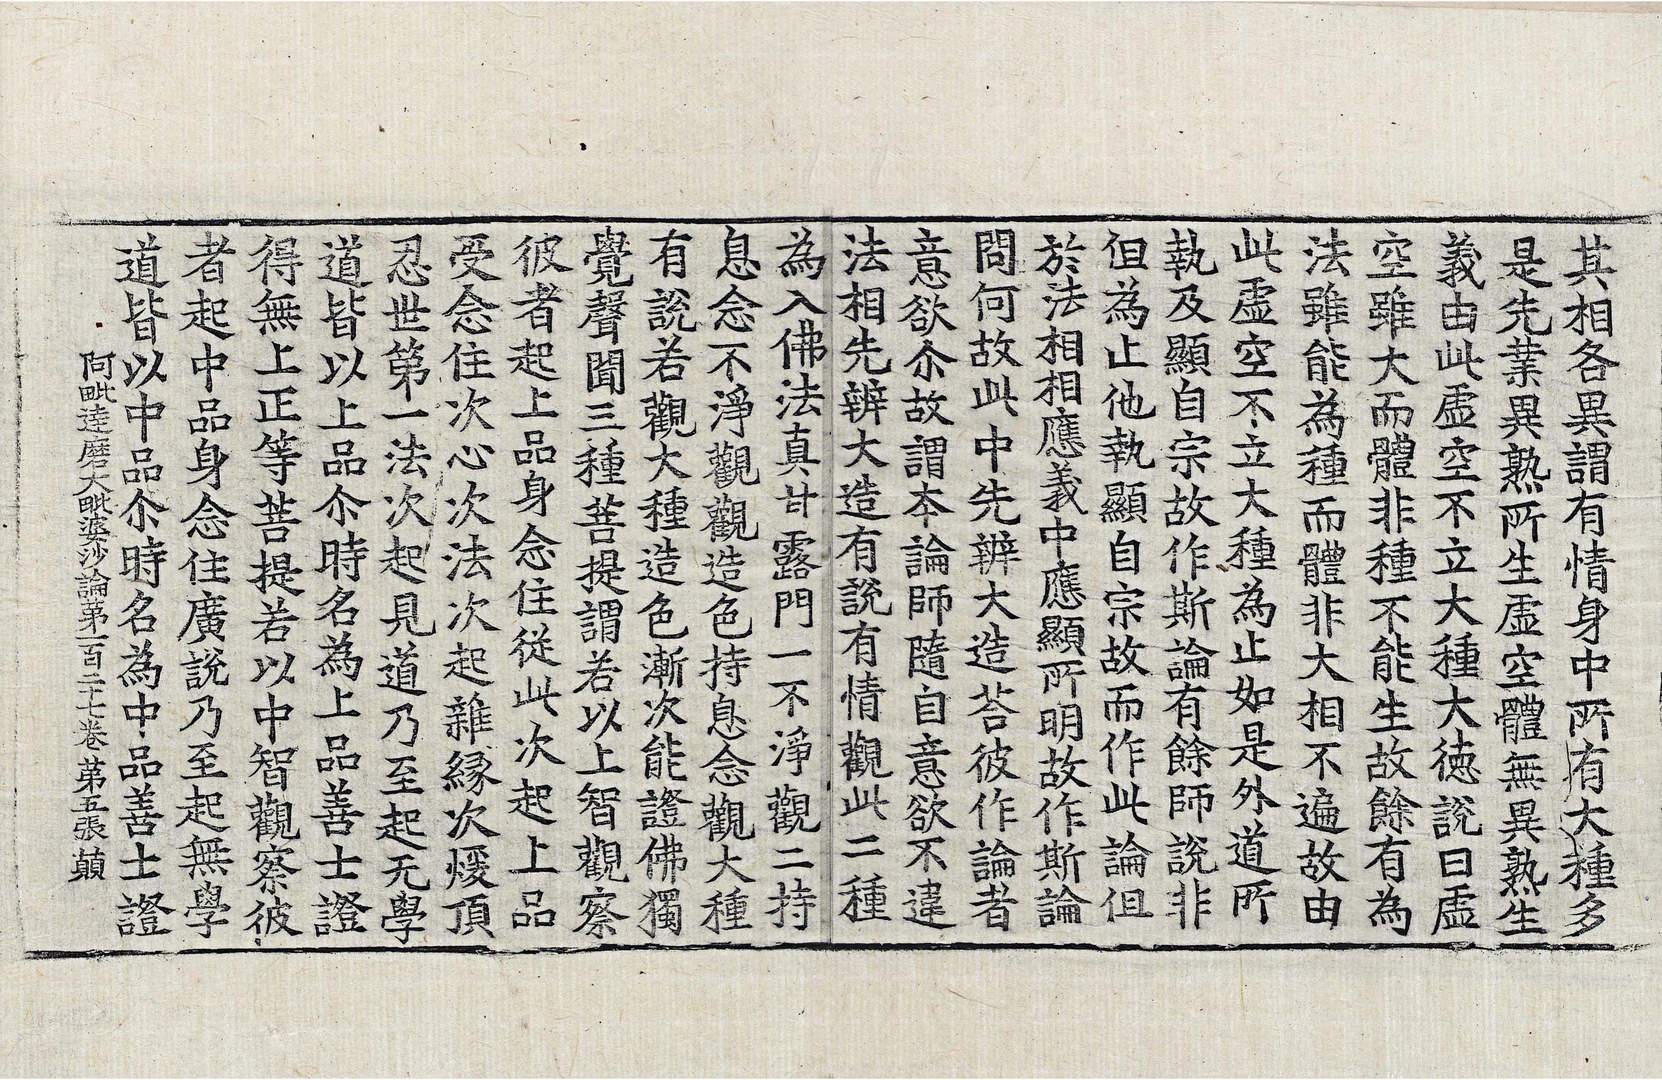 其相各異謂有情身中所有大種多
是先業異熟所生虛空體無異熟生
義由此虛空不立大種大德說曰虛
空雖大而體非種不能生故餘有為
法雖能為種而體非大相不遍故由
此虛空不立大種為止如是外道所
執及顯自宗故作斯論有餘師說非
但為止他執顯自宗故而作此論但
於法相相應義中應顯所明故作斯論
問何故此中先辨大造荅彼作論者
意欲尒故謂本論師隨自意欲不違
法相先辨大造有說有情觀此二種
為入佛法真甘露門一不淨觀二持
息念不淨觀觀造色持息念觀大種
有說若觀大種造色漸次能證佛獨
覺聲聞三種菩提謂若以上智觀察
彼者起上品身念住從此次起上品
受念住次心次法次起雜緣次煖頂
忍世第一法次起見道乃至起无學
道皆以上品尒時名為上品善士證
得無上正等菩提若以中智觀察彼
者起中品身念住廣說乃至起無學
道皆以中品尒時名為中品善士證
阿毗達磨大毗婆沙論第一百二十七卷 苐五張 顛